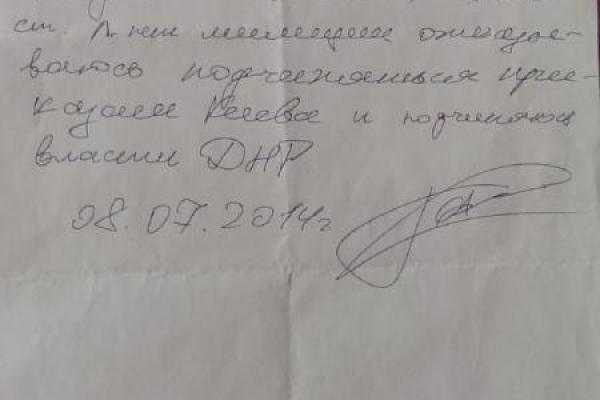 ст. милиции отказы-
ваюсь подчиняться при-
казам Киева и подчиняюсь
власти ДНР
08.07.2014г